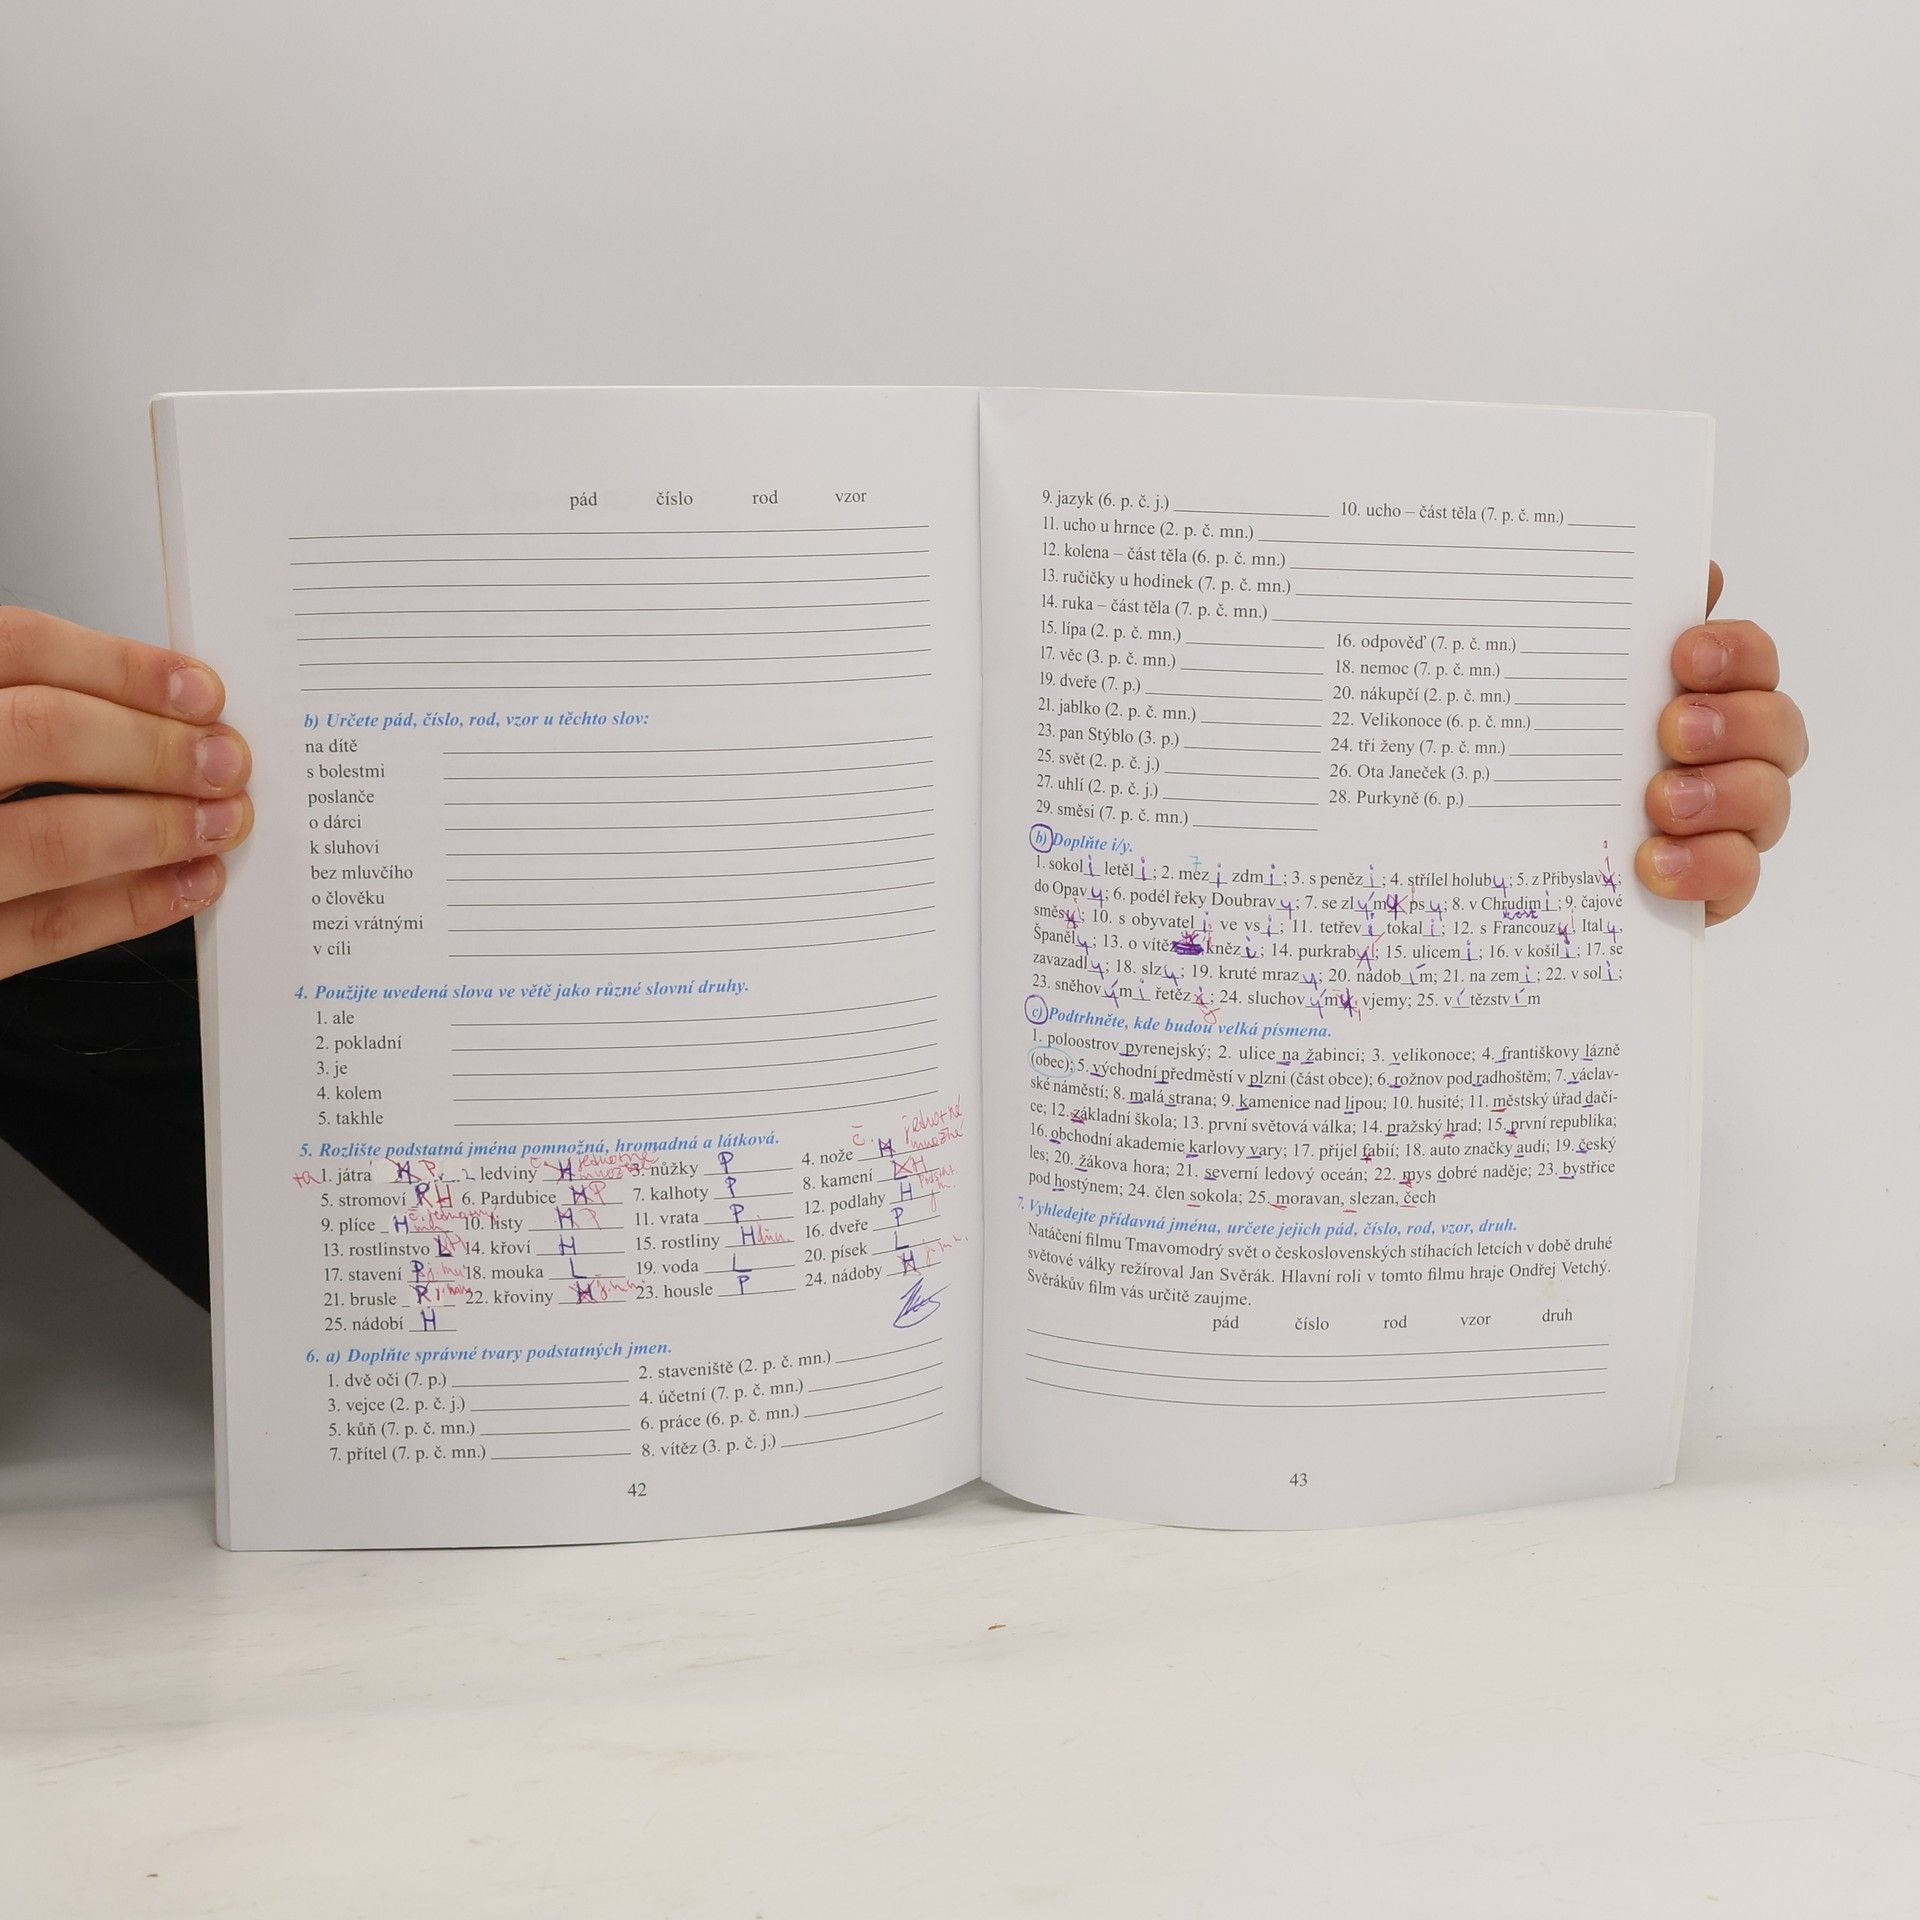 pád číslo rod vzor
b) Určete pád, číslo, rod, vzor u těchto slov:
na dítě
s bolestmi
poslanče
o dárci
k sluhovi
bez mluvčího
o člověku
mezi vrátnými
v cíli
4. Použijte uvedená slova ve větě jako různé slovní druhy.
1. ale
2. pokladní
3. je
4. kolem
5. takhle
5. Rozlište podstatná jména pomnožná, hromadná a látková.
1. játra H P 2. ledviny H jednotné množné 3. nůžky P 4. nože H č. jednotné množné
5. stromoví P H 6. Pardubice H P 7. kalhoty P 8. kamení H
9. plíce H 10. listy H P 11. vrata P 12. podlahy H
13. rostlinstvo L H 14. křoví H 15. rostliny H 16. dveře P
17. stavení P 18. mouka L 19. voda L 20. písek L
21. brusle P 22. křoviny H 23. housle P 24. nádoby H
25. nádobí H
6. a) Doplňte správné tvary podstatných jmen.
1. dvě oči (7. p.) 2. staveniště (2. p. č. mn.)
3. vejce (2. p. č. j.) 4. účetní (7. p. č. mn.)
5. kůň (7. p. č. mn.) 6. práce (6. p. č. mn.)
7. přítel (7. p. č. mn.) 8. vítěz (3. p. č. j.)
42
9. jazyk (6. p. č. j.) 10. ucho – část těla (7. p. č. mn.)
11. ucho u hrnce (2. p. č. mn.)
12. kolena – část těla (6. p. č. mn.)
13. ručičky u hodinek (7. p. č. mn.)
14. ruka – část těla (7. p. č. mn.)
15. lípa (2. p. č. mn.) 16. odpověď (7. p. č. mn.)
17. věc (3. p. č. mn.) 18. nemoc (7. p. č. mn.)
19. dveře (7. p.) 20. nákupčí (2. p. č. mn.)
21. jablko (2. p. č. mn.) 22. Velikonoce (6. p. č. mn.)
23. pan Stýblo (3. p.) 24. tři ženy (7. p. č. mn.)
25. svět (2. p. č. j.) 26. Ota Janeček (3. p.)
27. uhlí (2. p. č. j.) 28. Purkyně (6. p.)
29. směsi (7. p. č. mn.)
b) Doplňte i/y.
1. sokoli letěli; 2. mezi zdmi; 3. s penězi; 4. střílel holuby; 5. z Přibyslavi;
do Opavy; 6. podél řeky Doubravy; 7. se zlými psy; 8. v Chrudimi; 9. čajové
směsi; 10. s obyvateli ve vsi; 11. tetřevi tokali; 12. s Francouzi Italy,
Španěly; 13. o vítěz knězi; 14. purkrabí; 15. ulicemi; 16. v košili; 17. se
zavazadly; 18. slzy; 19. kruté mrazy; 20. nádobím; 21. na zemi; 22. v soli;
23. sněhovými řetězy; 24. sluchovými vjemy; 25. vítězstvím
c) Podtrhněte, kde budou velká písmena.
1. poloostrov pyrenejský; 2. ulice na žabinci; 3. velikonoce; 4. františkovy lázně
(obec); 5. východní předměstí v plzni (část obce); 6. rožnov pod radhoštěm; 7. václav-
ské náměstí; 8. malá strana; 9. kamenice nad lipou; 10. husité; 11. městský úřad dači-
ce; 12. základní škola; 13. první světová válka; 14. pražský hrad; 15. první republika;
16. obchodní akademie karlovy vary; 17. přijel fabií; 18. auto značky audi; 19. český
les; 20. žákova hora; 21. severní ledový oceán; 22. mys dobré naděje; 23. bystřice
pod hostýnem; 24. člen sokola; 25. moravan, slezan, čech
7. Vyhledejte přídavná jména, určete jejich pád, číslo, rod, vzor, druh.
Natáčení filmu Tmavomodrý svět o československých stíhacích letcích v době druhé
světové války režíroval Jan Svěrák. Hlavní roli v tomto filmu hraje Ondřej Vetchý.
Svěrákův film vás určitě zaujme.
pád číslo rod vzor druh
43